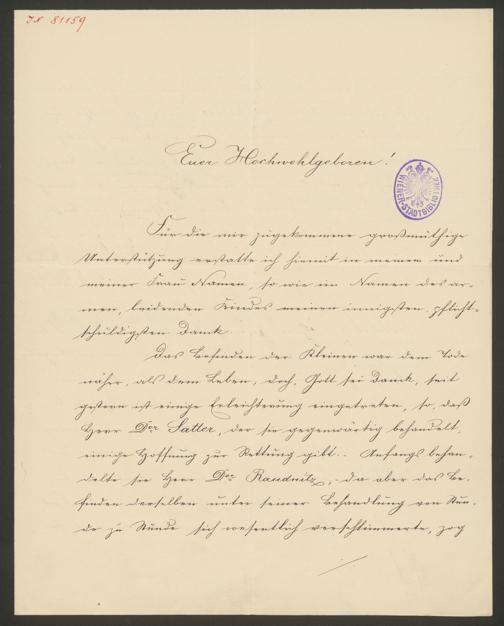 IN 81159
Euer Hochwohlgeboren!
WIENER-STADTBIBLIOTHEK
Für die mir zugekommene großmüthige
Unterstützung erstatte ich hiemit in meinem und
meiner Frau Namen, so wie im Namen des ar-
men, leidenden Kindes meinen innigsten, pflicht-
schuldigsten Dank.
Das Befinden der Kleinen war dem Tode
näher, als dem Leben, doch, Gott sei Dank, seit
gestern ist einige Erleichterung eingetreten, so, daß
Herr Dor Satter, der sie gegenwärtig behandelt,
einige Hoffnung zur Rettung gibt. Anfangs behan-
delte sie Herr Dor Raudnitz, da aber das Be-
finden derselben unter seiner Behandlung von Stun-
de zu Stunde sich wesentlich verschlimmerte, zog